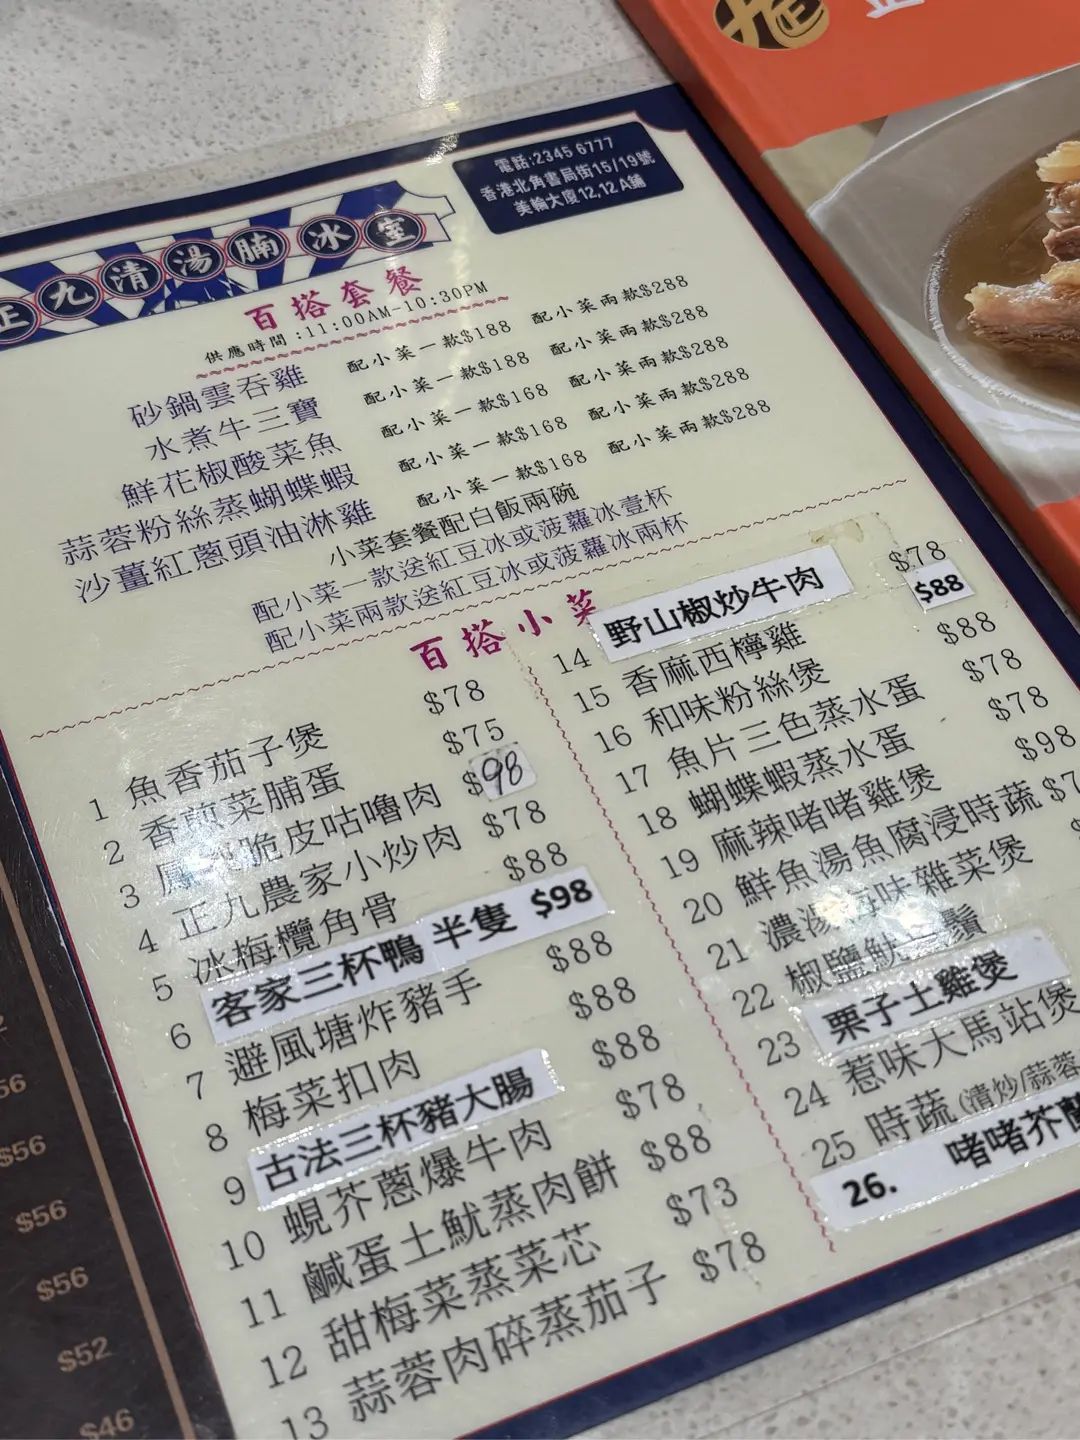 電話:2345 6777
香港北角書局街15/19號
美輪大廈12,12A舖
正九清湯腩冰室
百搭套餐
供應時間:11:00AM-10:30PM
砂鍋雲吞雞 配小菜一款$188 配小菜兩款$288
水煮牛三寶 配小菜一款$188 配小菜兩款$288
鮮花椒酸菜魚 配小菜一款$168 配小菜兩款$288
蒜蓉粉絲蒸蝴蝶蝦 配小菜一款$168 配小菜兩款$288
沙薑紅蔥頭油淋雞 配小菜一款$168 配小菜兩款$288
小菜套餐配白飯兩碗
配小菜一款送紅豆冰或菠蘿冰壹杯
配小菜兩款送紅豆冰或菠蘿冰兩杯
百搭小菜
1 魚香茄子煲 $78
2 香煎菜脯蛋 $75
3 脆皮咕嚕肉 $98
4 正九農家小炒肉 $78
5 冰梅欖角骨 $88
6 客家三杯鴨 半隻 $98
7 避風塘炸豬手 $88
8 梅菜扣肉 $88
9 古法三杯豬大腸 $88
10 蜆芥蔥爆牛肉 $78
11 鹹蛋土魷蒸肉餅 $88
12 甜梅菜蒸菜芯 $73
13 蒜蓉肉碎蒸茄子 $78
14 野山椒炒牛肉 $78
15 香麻西檸雞 $88
16 和味粉絲煲 $88
17 魚片三色蒸水蛋 $78
18 蝴蝶蝦蒸水蛋 $78
19 麻辣啫啫雞煲 $98
20 鮮魚湯魚腐浸時蔬 $7
21 濃湯海味雜菜煲
22 椒鹽魷鬚
23 栗子土雞煲
24 惹味大馬站煲
25 時蔬(清炒/蒜蓉
26. 啫啫芥蘭
56
$56
$56
$56
$52
$46